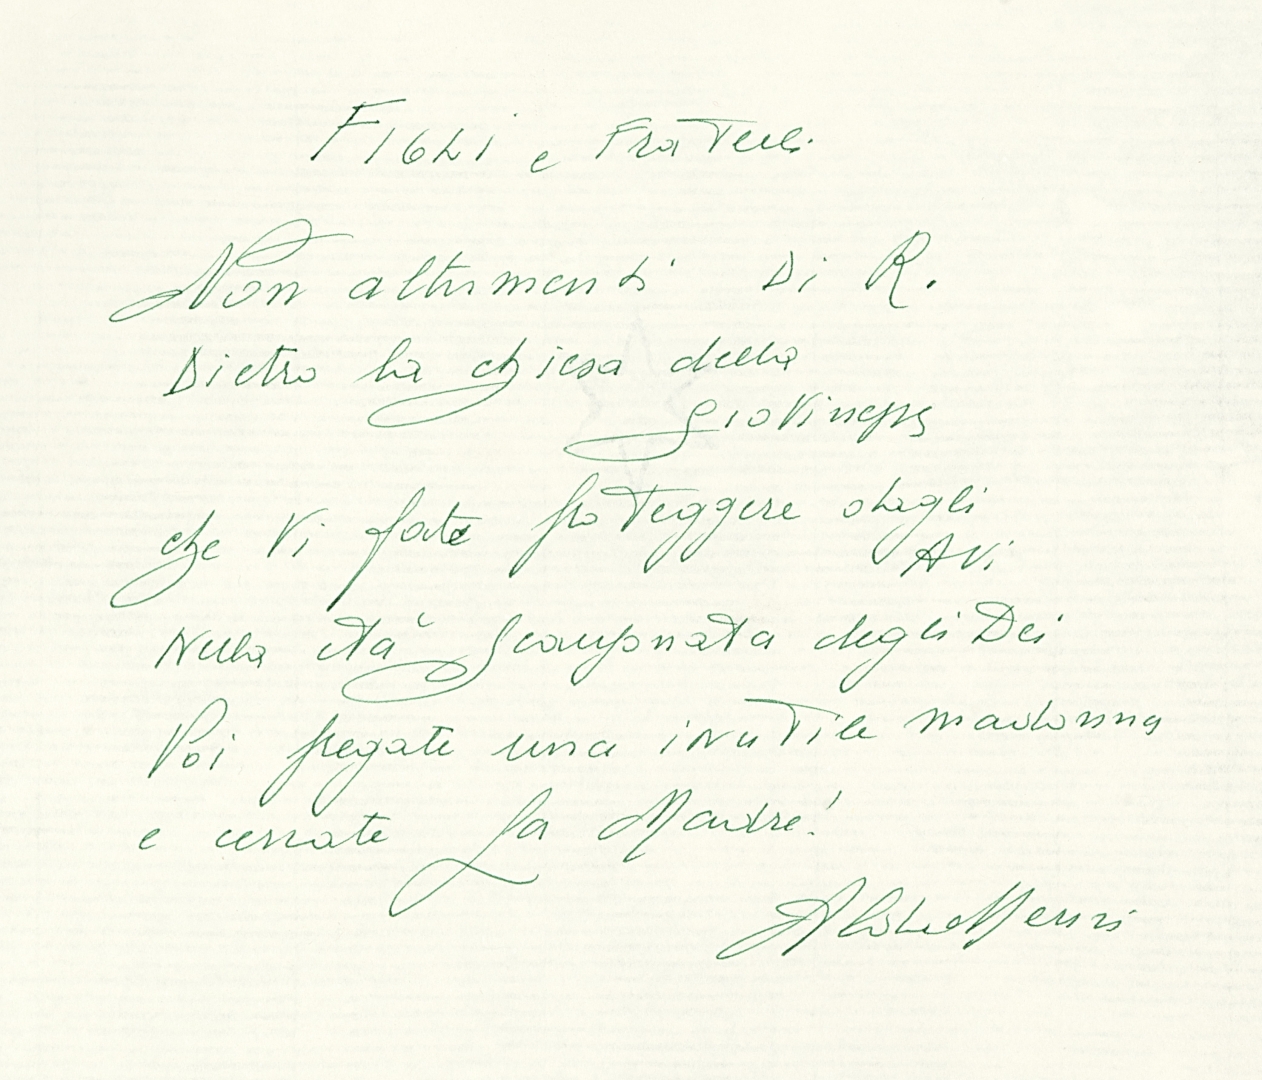 FIGLI e FraTelli
Non altrimenti Di R.
Dietro la chiesa della
giovinezza
che Vi fate proteggere dagli
AVi
Nella età scampanata degli Dei
Poi pregate una inuTile madonna
e cercate La Madre!
Alda Merini